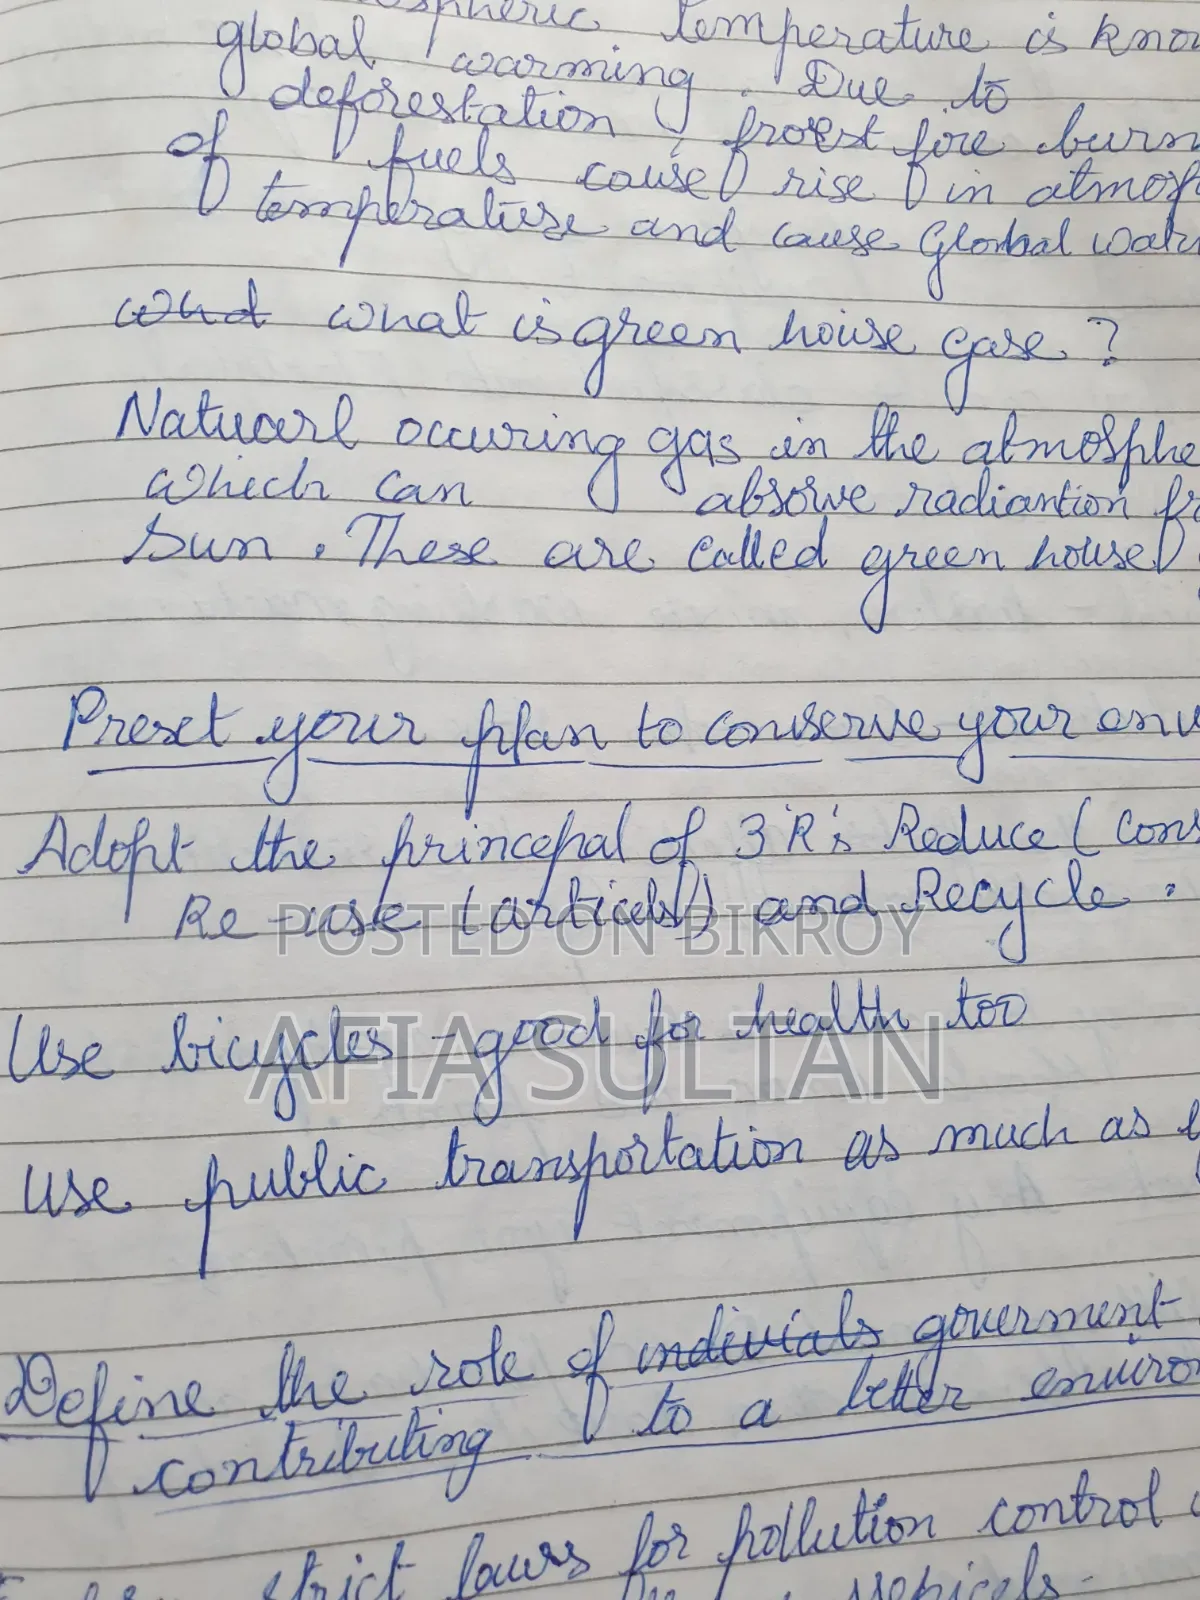 temperature is
global warming. Due to
deforestation, frorest fire burn
of fuels cause rise in atmosp
temperature and cause Global
what is green house gase?
Natuarl occuring gas in the atmosphe
which can absorve radiantion
Sun. These are called green house
Preset your plan to conserve your env
Adopt the princepal of 3'R's Reduce (cons
Re-use (articels) and Recycle.
POSTED ON BIKROY
Use bicycles - good for health too
AFIA SULTAN
Use public transportation as much as
Define the role of indivials government
contributing to a better enviro
strict laws for pollution control